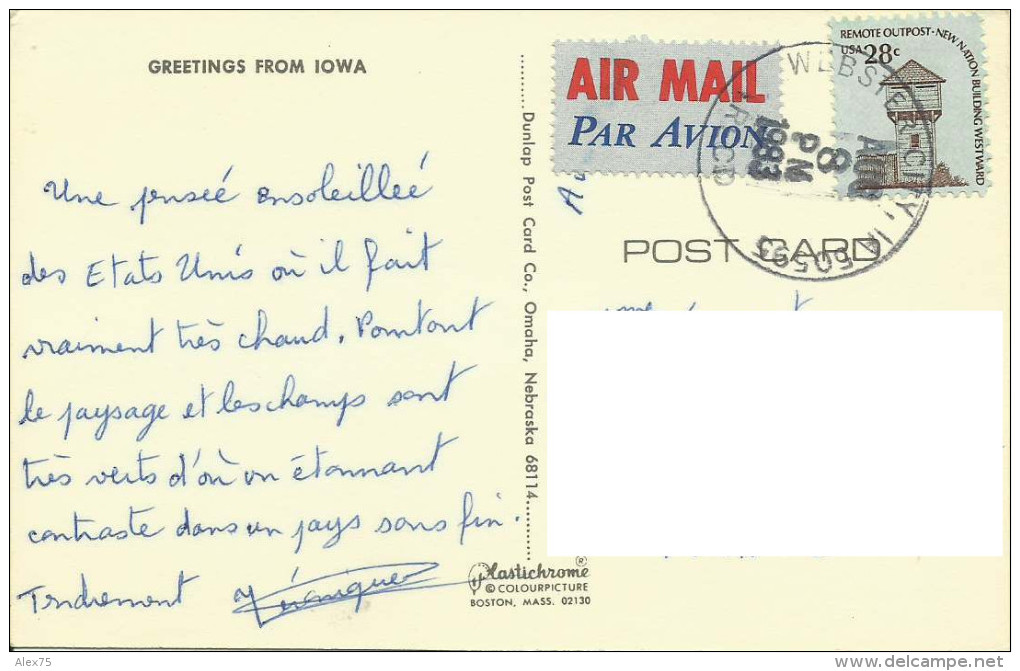 GREETINGS FROM IOWA
Une penseé ensoleilleé
des Etats Unis où il fait
vraiment très chaud. Pourtant
le paysage et les champs sont
très verts d'où un étonnant
contraste dans un pays sans fin.
Tendrement Véronique
Dunlap Post Card Co., Omaha, Nebraska 68114
AIR MAIL
PAR AVION
REMOTE OUTPOST·NEW NATION BUILDING WESTWARD
USA 28c
WEBSTER CITY, IA 50595
AUG
8
PM
1983
POST CARD
Plastichrome®
© COLOURPICTURE
BOSTON, MASS. 02130
Alex75
www.delcampe.net